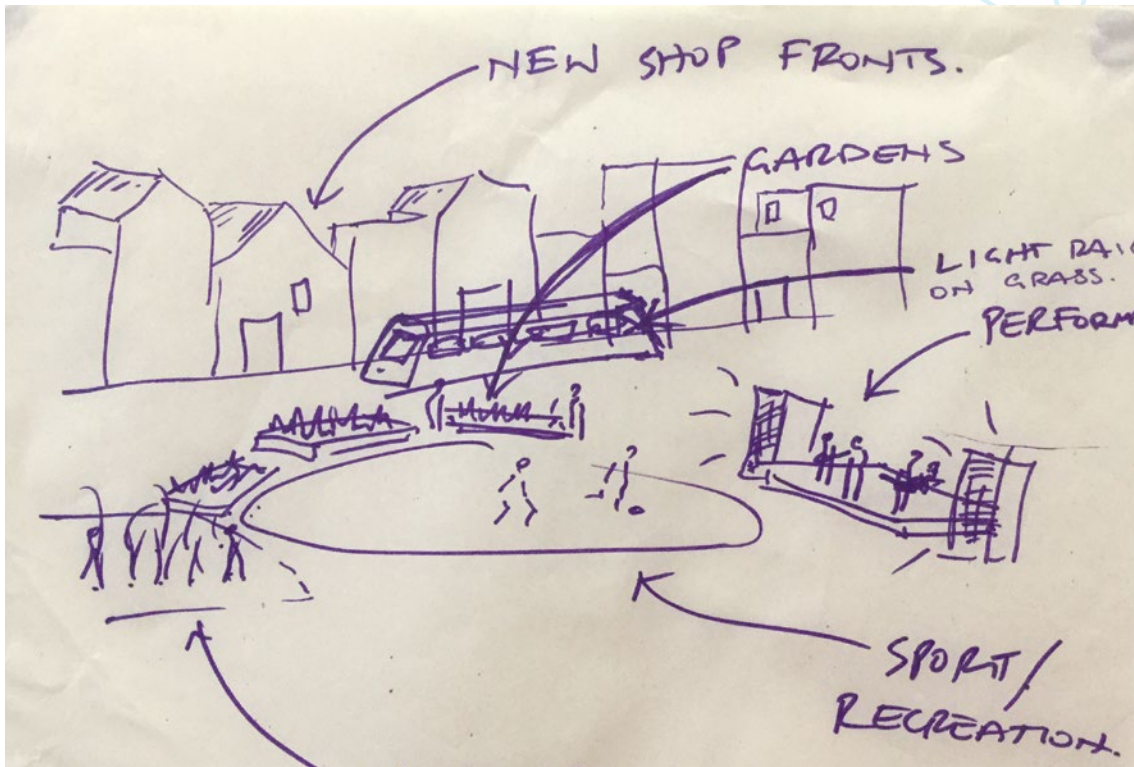 NEW SHOP FRONTS.
GARDENS
LIGHT RAI
ON GRASS.
PERFORM
SPORT/
RECREATION.